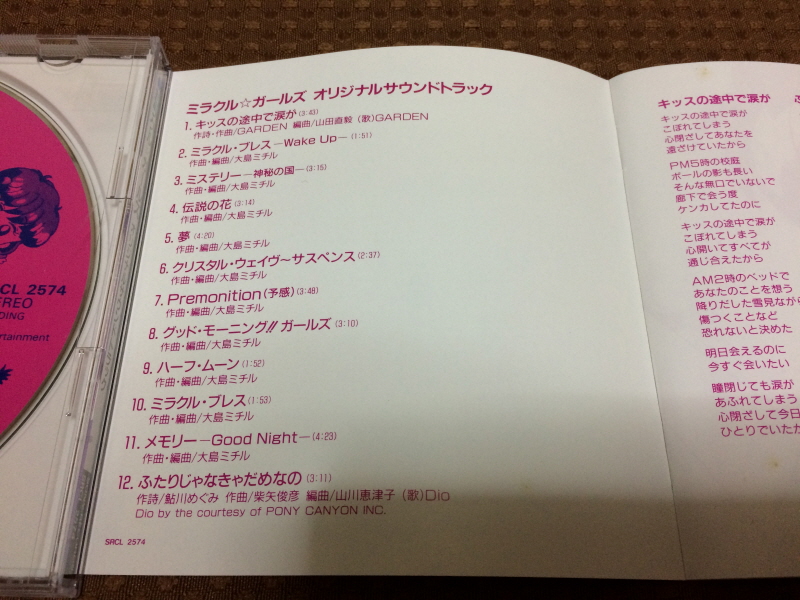 CL 2574
EREO
DING
ertainment
ミラクル☆ガールズ オリジナルサウンドトラック
1. キッスの途中で涙が(3:43)
作詩・作曲/GARDEN 編曲/山田直毅 (歌)GARDEN
2. ミラクル・ブレス—Wake Up—(1:51)
作曲・編曲/大島ミチル
3. ミステリー—神秘の国—(3:15)
作曲・編曲/大島ミチル
4. 伝説の花(3:14)
作曲・編曲/大島ミチル
5. 夢(4:20)
作曲・編曲/大島ミチル
6. クリスタル・ウェイヴ〜サスペンス(2:37)
作曲・編曲/大島ミチル
7. Premonition(予感)(3:48)
作曲・編曲/大島ミチル
8. グッド・モーニング!! ガールズ(3:10)
作曲・編曲/大島ミチル
9. ハーフ・ムーン(1:52)
作曲・編曲/大島ミチル
10. ミラクル・ブレス(1:53)
作曲・編曲/大島ミチル
11. メモリー—Good Night—(4:23)
作曲・編曲/大島ミチル
12. ふたりじゃなきゃだめなの(3:11)
作詩/鮎川めぐみ 作曲/柴矢俊彦 編曲/山川恵津子 (歌)Dio
Dio by the courtesy of PONY CANYON INC.
SRCL 2574
キッスの途中で涙が
キッスの途中で涙が
こぼれてしまう
心閉ざしてあなたを
遠ざけていたから
PM5時の校庭
ボールの影も長い
そんな無口でいないで
廊下で会う度
ケンカしてたのに
キッスの途中で涙が
こぼれてしまう
心開いてすべてが
通じ合えたから
AM2時のベッドで
あなたのことを想う
降りだした雪見ながら
傷つくことなど
恐れないと決めた
明日会えるのに
今すぐ会いたい
瞳閉じても涙が
あふれてしまう
心閉ざして今日
ひとりでいたか